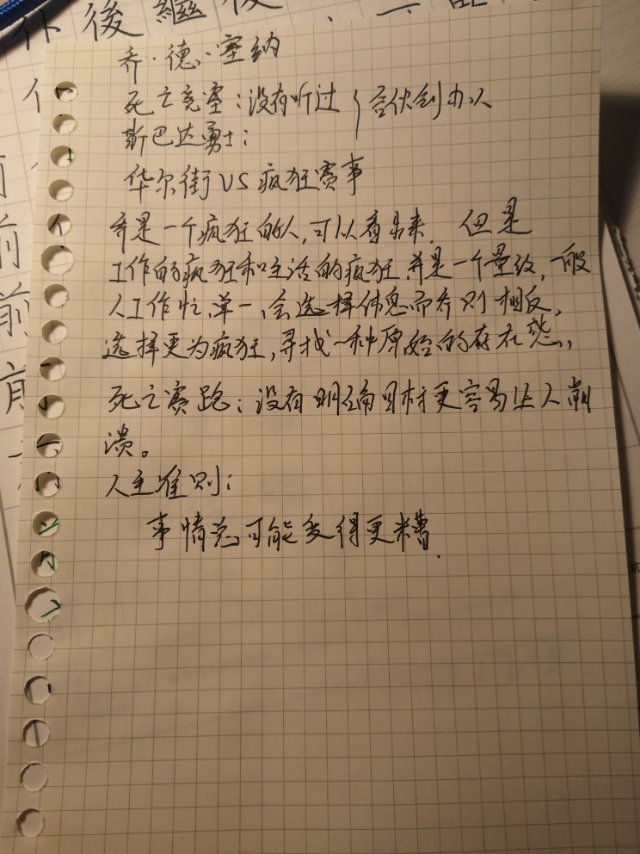 後繼
乔·德·塞纳
死亡竞赛：没有听过 } 合伙创办人
斯巴达勇士：
华尔街VS疯狂赛事
乔是一个疯狂的人，可以看出来。但是
工作的疯狂和生活的疯狂并是一个量级，一般
人工作忙，单一，会选择休息而乔则相反，
选择更为疯狂，寻找一种原始的存在感，
死亡赛跑：没有明确目标更容易让人崩
溃。
人生准则：
事情总可能变得更糟.
前
前